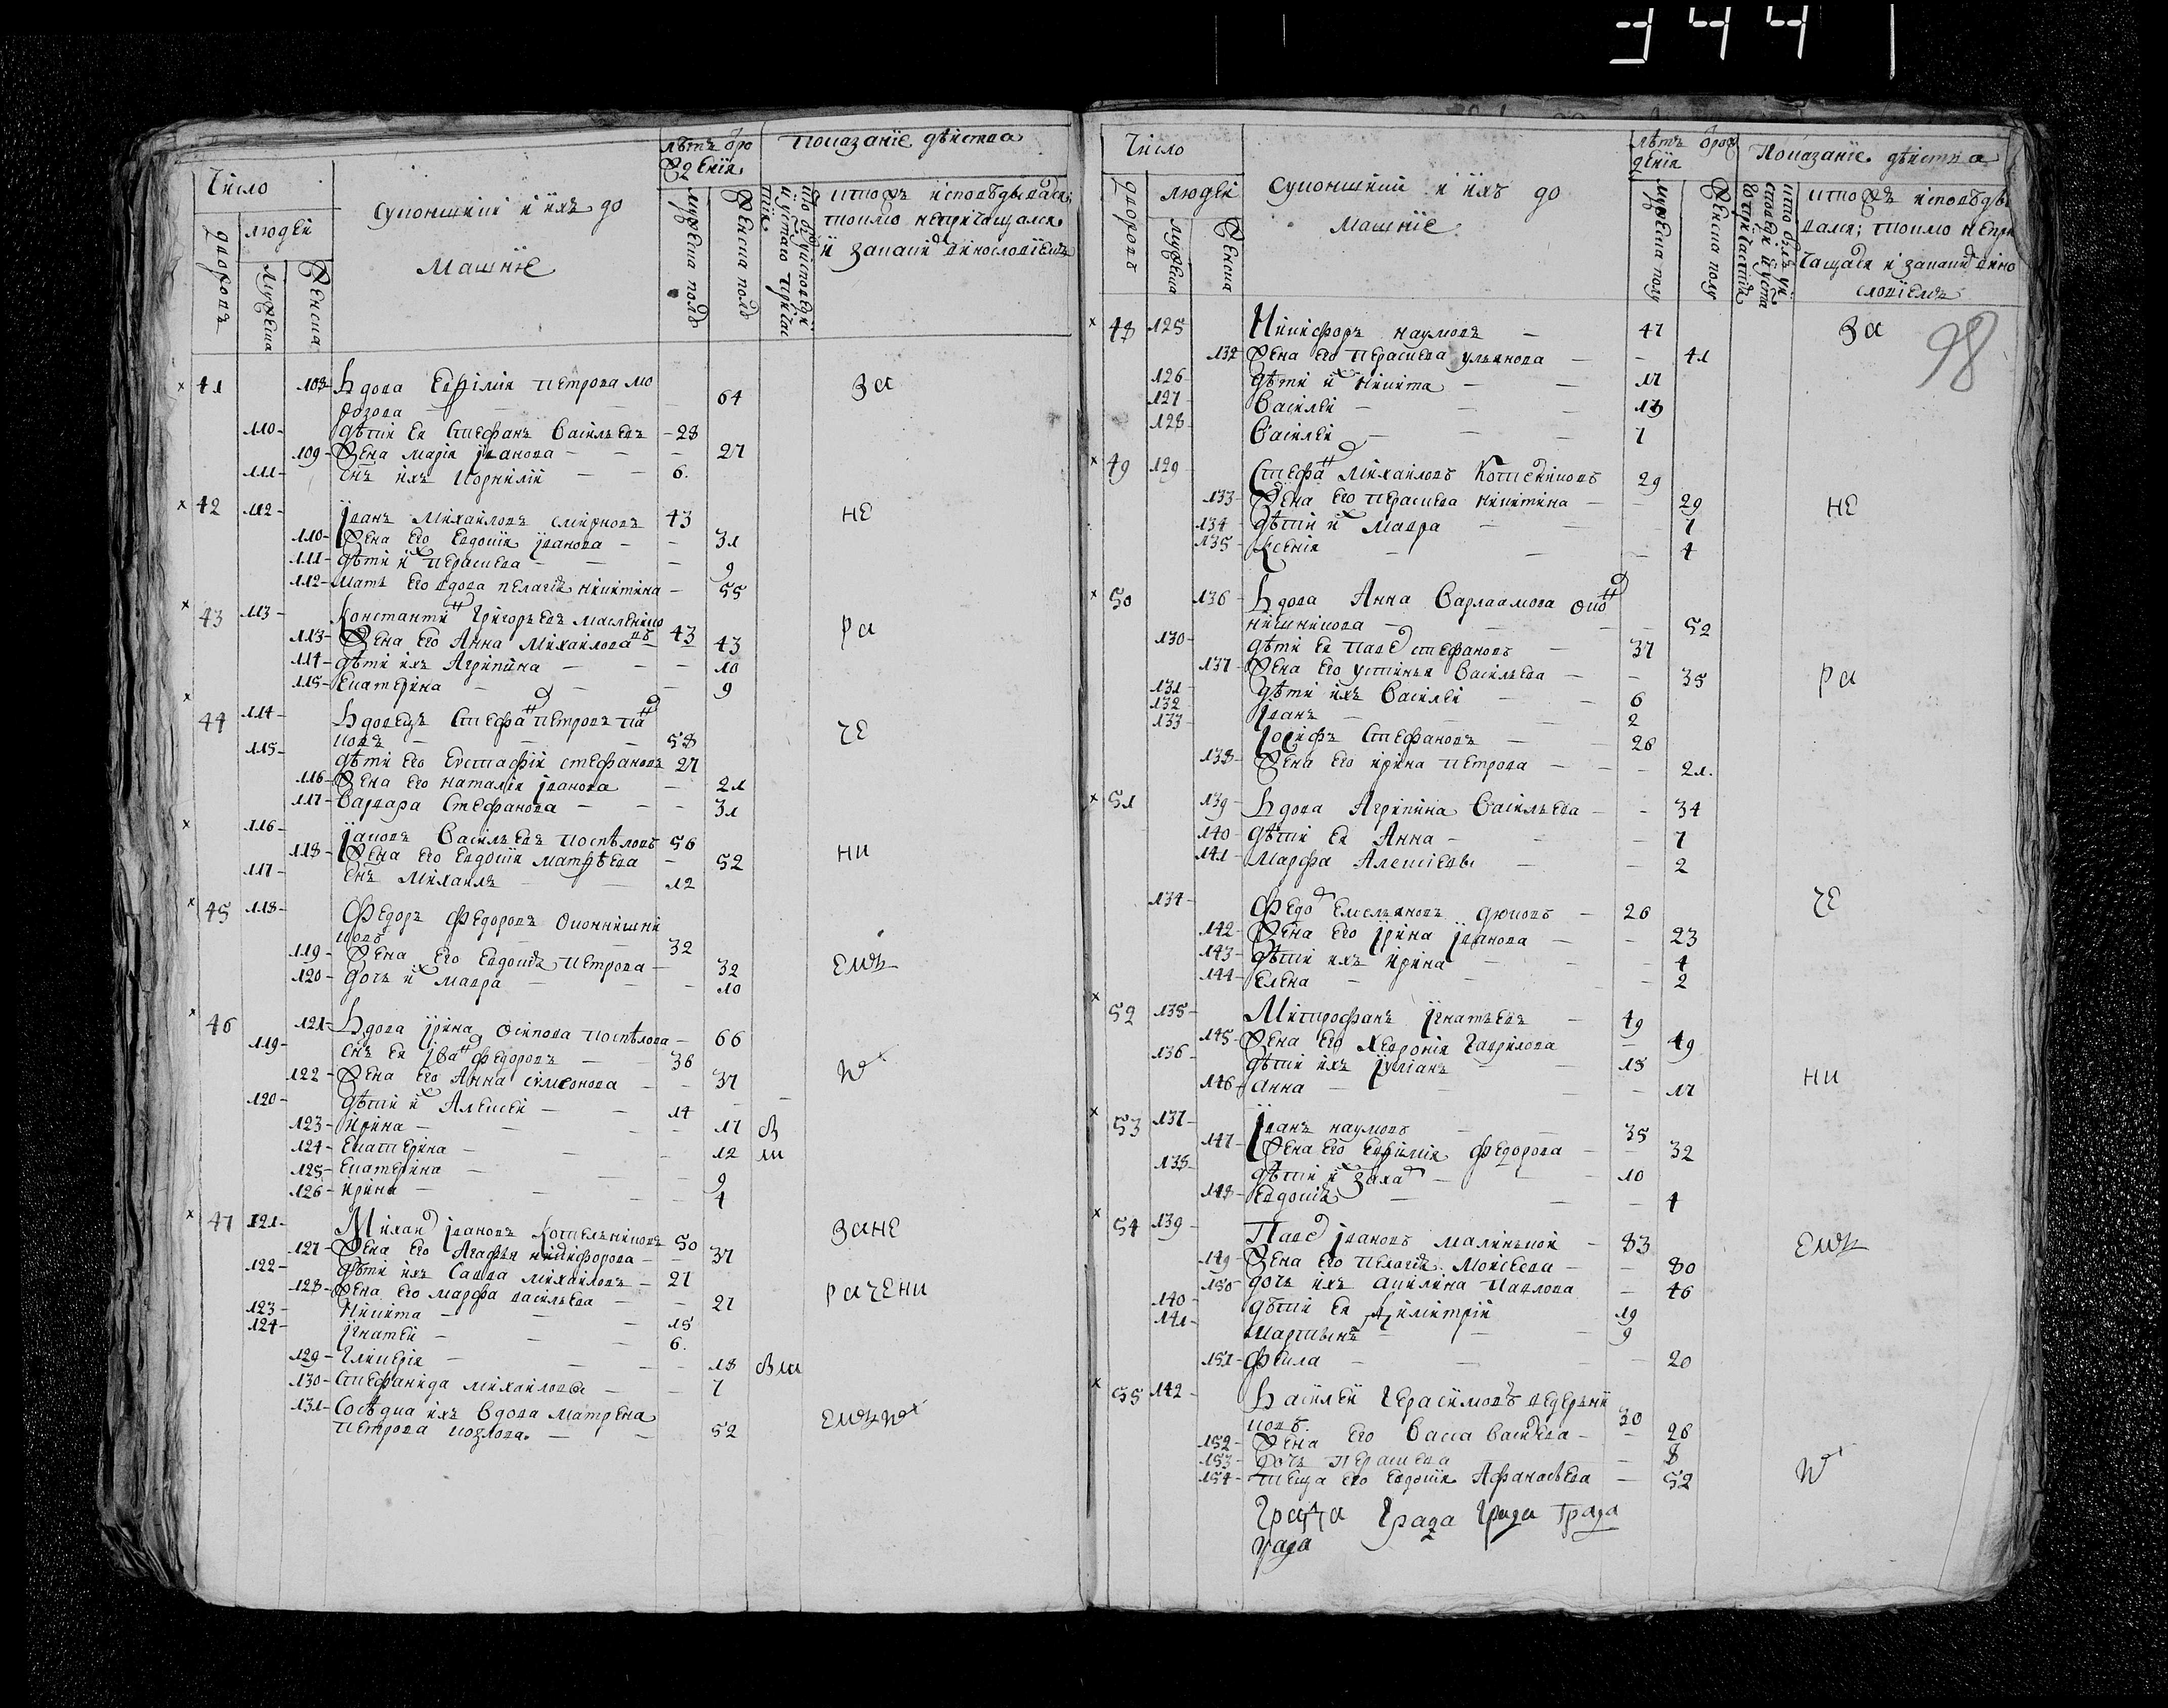 3441
Число
Суконщики и ихъ до
машніе
лѣтъ ѿ ро
жденія
Показаніе дѣиства
дворовъ
людеи
мужеска
женска
мужеска полꙋ
женска полꙋ
кто жъ исповѣдывался,
токмо непричащался
и закакимъ винословіемъ
41 108 Вдова Евфимія Петрова мо
розова 64 За
110 дѣти ея Стефанъ Васильевъ 28
109 Жена марія іванова 27
111 снъ ихъ Корнилій 6.
42 112 Іванъ Михаиловъ смирновъ 43 не
110 Жена его Евдокія іванова 31
111 дѣти их Параскева 9
112 мать его вдова пелагія никитина 55
43 113 Константинъ Григорьевъ масленико
въ 43 ра
113 Жена его Анна Михаилова 43
114 дѣти ихъ Агрипина 10
115 Екатерина 9
44 114 Вдовецъ Стефанъ петровъ
58 че
115 дѣти его Евстафій стефановъ 27
116 Жена его наталія іванова 21
117 Варвара Стефанова 31
116 Іаковъ Васильевъ поспѣловъ 56 ни
118 Жена его Евдокія матфѣева 52
117 снъ Михаилъ 12
45 118 Федоръ федоровъ Оконнишни
ковъ 32
119 Жена его Евдокія петрова 32 емъ
120 дочь их мавра 10
46 121 Вдова ірина осипова поспѣлова 66
119 снъ ея іванъ федоровъ 36
122 Жена его Анна симеонова 37 ѿ
120 дѣти их Алексей 14
123 Ирина 17 в
124 Екатерина 12 ш
125 Екатерина 9
126 Ирина 4
47 121 Михаи івановъ Котельниковъ 50 Зане
127 Жена его Агафья никифорова 37
122 дѣти ихъ Савва михаиловъ 27
128 Жена его марфа васильева 27 рачени
123 Никита 15
124 Ігнатеи 6.
129 Гликерія 18 вш
130 Стефанида михаиловы 7
131 Сосѣдка ихъ вдова матрена
петрова козлова. 52 емъ ѿ
Число
Суконщики и ихъ до
машніе
лѣтъ ѿ рож
денія
Показаніе дѣиства
дворовъ
людеи
мужеска
женска
мужеска полу
женска полу
ктожъ исповѣды
вался; токмо непри
чащался и закаким вино
словіемъ
98
48 125 Никифоръ наумовъ 47 За
132 Жена его параскева ульянова 41
126 дѣти их Никита 17
127 Василеи 13
128 Василеи 7
49 129 Стефанъ михаиловъ Котельниковъ 29
133 Жена его параскева никитина 29 не
134 дѣти их мавра 7
135 Ксенія 4
50 136 Вдова Анна Варлаамова окон
нишникова 52
130 дѣти ея паве стефановъ 37
137 Жена его устинья Васильева 35 ра
131 дѣти ихъ Василеи 6
132 Іванъ 2
133 Іосифъ Стефановъ 26
138 Жена его ирина петрова 21.
51 139 Вдова Агрипина Васильева 34
140 дѣти ея Анна 7
141 Марфа Алексіевы 2
134 Федо Емельяновъ дюковъ 26 че
142 Жена его ірина іванова 23
143 дѣти ихъ ирина 4
144 Елена 2
52 135 Митрофанъ ігнатьевъ 49
145 Жена его Хеврония Гаврилова 49
136 дѣти ихъ Іуліанъ 15
146 Анна 17 ни
53 137 Іванъ наумовъ 35
147 Жена его Евфимія федорова 32
138 дѣти их Заха 10
148 Евдокія 4
54 139 Паве івановъ малинькой 83 емъ
149 Жена его пелагія Моисеева 80
150 дочь ихъ акилина павлова 46
140 дѣти ея Димитрій 19
141 мартынъ 9
151 Фекла 20
55 142 Василеи Герасимовъ ведерни
ковъ. 30
152 Жена его Васса Васильева 26
153 дочь параскева 8
154 теща его Евдокія Афанасьева 52 ѿ
Града Града Града Града
Града